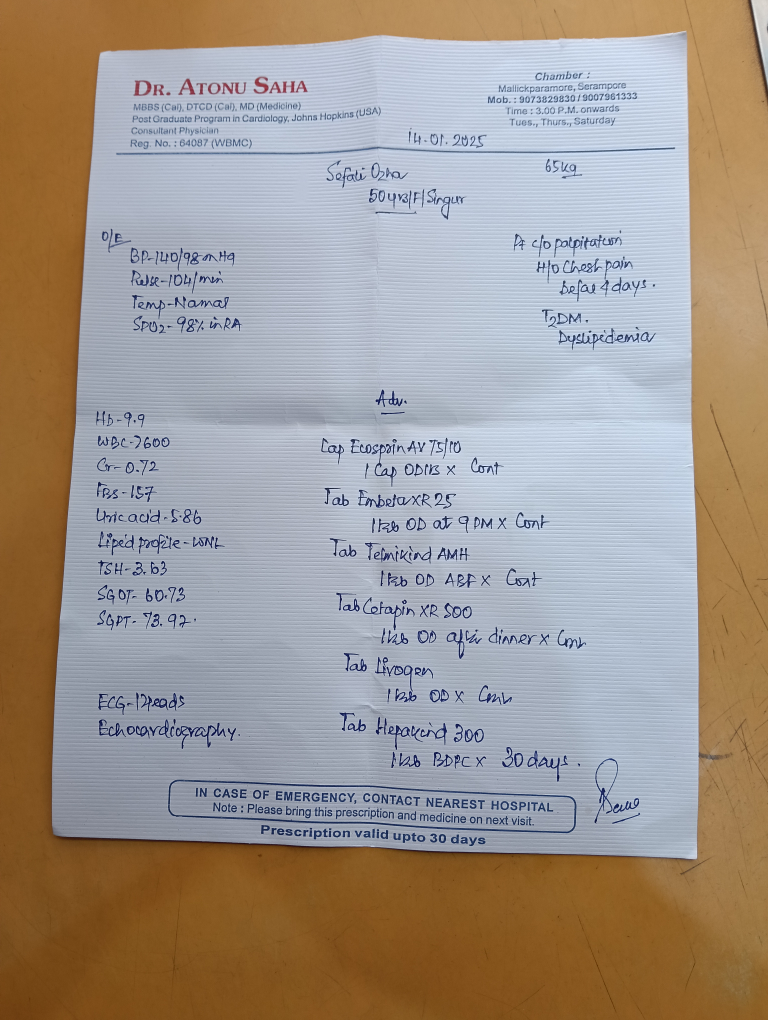 DR. ATONU SAHA
MBBS (Cal), DTCD (Cal), MD (Medicine)
Post Graduate Program in Cardiology, Johns Hopkins (USA)
Consultant Physician
Reg. No. : 64087 (WBMC)
Chamber :
Mallickparamore, Serampore
Mob. : 9073829830 / 9007961333
Time : 3.00 P.M. onwards
Tues., Thurs., Saturday
14.01.2025
Sefali Ozha
65kg
50yrs/F/Singur
O/E
BP-140/98mmHg
Pulse-104/min
Temp-Normal
SPO2-98% in RA
Pt c/o palpitation
H/O Chest pain
before 4 days.
T2DM.
Dyslipidemia
Adv.
Hb-9.9
WBC-7600
Cr-0.72
FBS-157
Uric acid-5.86
Lipid profile-WNL
TSH-3.53
SGOT-60.73
SGPT-73.92.
ECG-12leads
Echocardiography.
Cap Ecosprin AV 75/10
1 Cap OD x Cont
Tab Embeta XR 25
1 tab OD at 9 PM x Cont
Tab Telmikind AMH
1 tab OD ABF x Cont
Tab Cetapin XR 500
1 tab OD after dinner x Cont
Tab Livogen
1 tab OD x Cont
Tab Hepakind 300
1 tab BDPC x 30 days.
IN CASE OF EMERGENCY, CONTACT NEAREST HOSPITAL
Note : Please bring this prescription and medicine on next visit.
Prescription valid upto 30 days